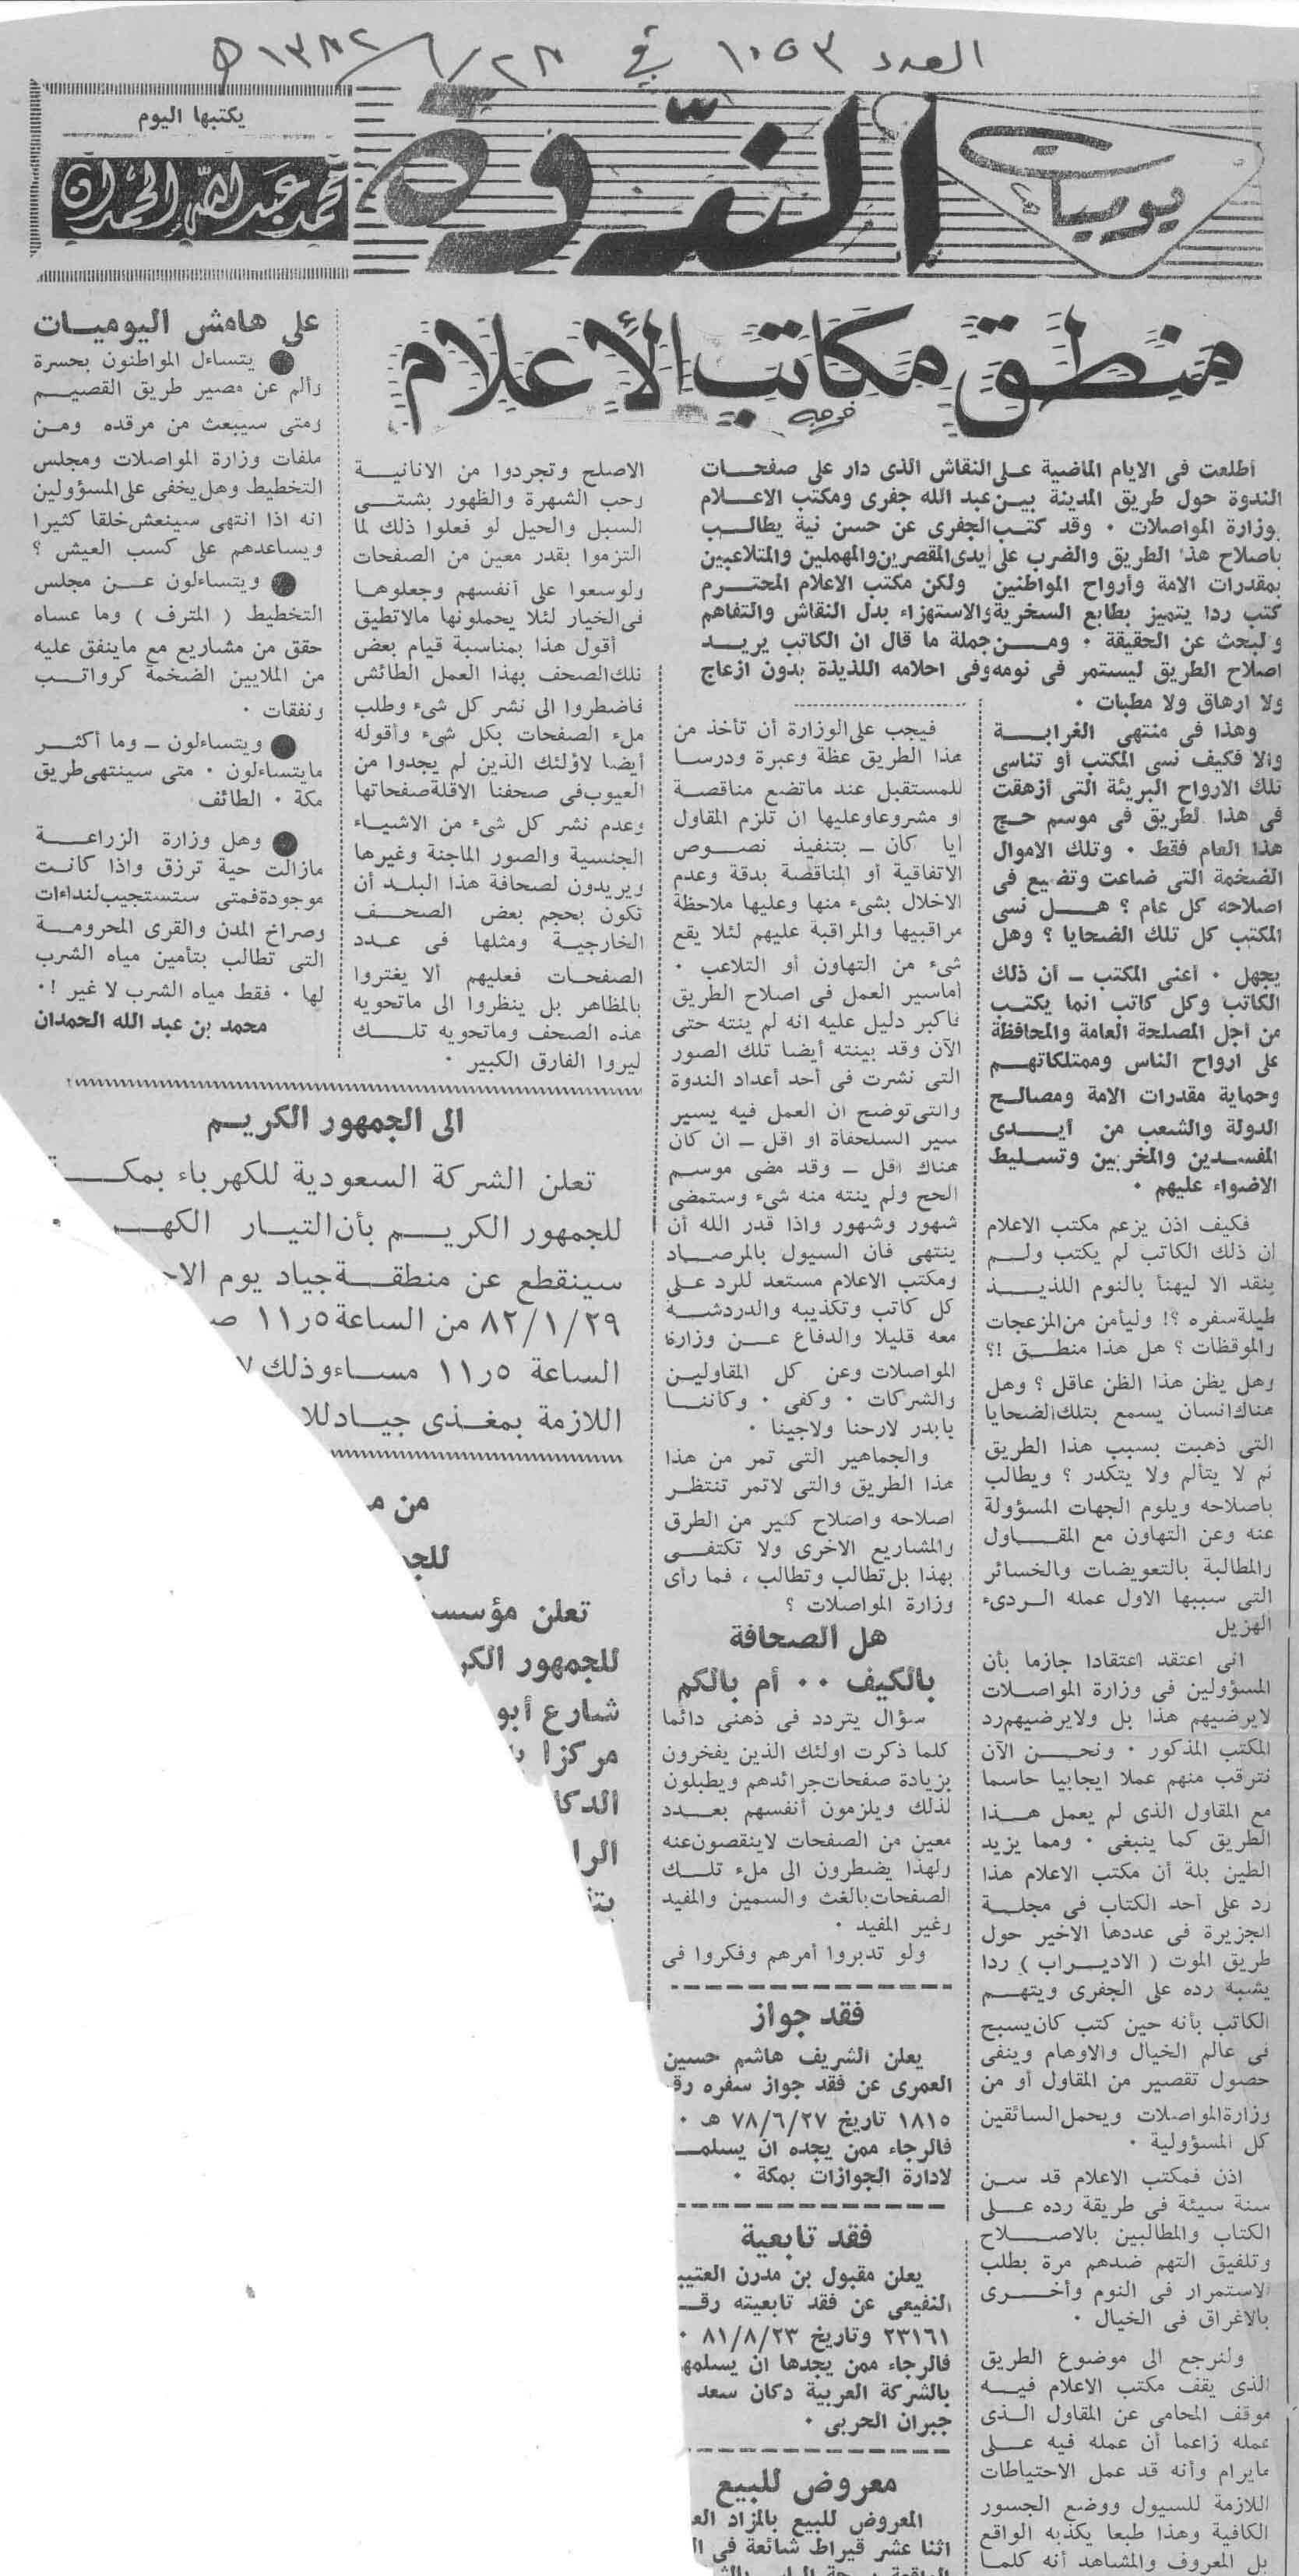 العدد ١٠٥٣ في ٢٨/٦/١٣٨٢ھ
يوميات
الندوة
يكتبها اليوم
محمد عبدالله الحمدان
منطق مكاتب الأعلام
فرجه
أطلعت فى الايام الماضية على النقاش الذى دار على صفحات
الندوة حول طريق المدينة بين عبد الله جفرى ومكتب الاعلام
بوزارة المواصلات ٠ وقد كتب الجفرى عن حسن نية يطالب
باصلاح هذا الطريق والضرب على أيدى المقصرين والمهملين والمتلاعبين
بمقدرات الامة وأرواح المواطنين ولكن مكتب الاعلام المحترم
كتب ردا يتميز بطابع السخرية والاستهزاء بدل النقاش والتفاهم
والبحث عن الحقيقة ٠ ومن جملة ما قال ان الكاتب يريد
اصلاح الطريق ليستمر فى نومه وفى احلامه اللذيذة بدون ازعاج
ولا ارهاق ولا مطبات ٠
وهذا فى منتهى الغرابة
والا فكيف نسى المكتب أو تناسى
تلك الارواح البريئة التى أزهقت
فى هذا لطريق فى موسم حج
هذا العام فقط ٠ وتلك الاموال
الضخمة التى ضاعت وتضيع فى
اصلاحه كل عام ؟ هل نسى
المكتب كل تلك الضحايا ؟ وهل
يجهل ٠ أعنى المكتب ـ أن ذلك
الكاتب وكل كاتب انما يكتب
من اجل المصلحة العامة والمحافظة
على ارواح الناس وممتلكاتهم
وحماية مقدرات الامة ومصالح
الدولة والشعب من أيدى
المفسدين والمخربين وتسليط
الاضواء عليهم ٠
فكيف اذن يزعم مكتب الاعلام
ان ذلك الكاتب لم يكتب ولم
ينقد الا ليهنأ بالنوم اللذيذ
طيلة سفره ؟! وليأمن من المزعجات
والموقظات ؟ هل هذا منطق !؟
وهل يظن هذا الظن عاقل ؟ وهل
هناك انسان يسمع بتلك الضحايا
التى ذهبت بسبب هذا الطريق
ثم لا يتألم ولا يتكدر ؟ ويطالب
باصلاحه ويلوم الجهات المسؤولة
عنه وعن التهاون مع المقاول
والمطالبة بالتعويضات والخسائر
التى سببها الاول عمله الردىء
الهزيل
انى اعتقد اعتقادا جازما بأن
المسؤولين فى وزارة المواصلات
لايرضيهم هذا بل ولايرضيهم رد
المكتب المذكور ٠ ونحن الآن
نترقب منهم عملا ايجابيا حاسما
مع المقاول الذى لم يعمل هذا
الطريق كما ينبغى ٠ ومما يزيد
الطين بلة أن مكتب الاعلام هذا
رد على أحد الكتاب فى مجلة
الجزيرة فى عددها الاخير حول
طريق الموت ( الاديراب ) ردا
يشبه رده على الجفرى ويتهم
الكاتب بأنه حين كتب كان يسبح
فى عالم الخيال والاوهام وينفى
حصول تقصير من المقاول أو من
وزارة المواصلات ويحمل السائقين
كل المسؤولية ٠
اذن فمكتب الاعلام قد سن
سنة سيئة فى طريقة رده على
الكتاب والمطالبين بالاصلاح
وتلفيق التهم ضدهم مرة بطلب
الاستمرار فى النوم وأخرى
بالاغراق فى الخيال ٠
ولنرجع الى موضوع الطريق
الذى يقف مكتب الاعلام فيه
موقف المحامى عن المقاول الذى
عمله زاعما أن عمله فيه على
مايرام وأنه قد عمل الاحتياطات
اللازمة للسيول ووضع الجسور
الكافية وهذا طبعا يكذبه الواقع
بل المعروف والمشاهد أنه كلما
فيجب على الوزارة أن تأخذ من
هذا الطريق عظة وعبرة ودرسا
للمستقبل عند ماتضع مناقصة
او مشروعا وعليها ان تلزم المقاول
ايا كان ـ بتنفيذ نصوص
الاتفاقية أو المناقصة بدقة وعدم
الاخلال بشىء منها وعليها ملاحظة
مراقبيها والمراقبة عليهم لئلا يقع
شىء من التهاون أو التلاعب ٠
أماسير العمل فى اصلاح الطريق
فأكبر دليل عليه انه لم ينته حتى
الآن وقد بينته أيضا تلك الصور
التى نشرت فى أحد أعداد الندوة
والتى توضح ان العمل فيه يسير
سير السلحفاة او اقل ـ ان كان
هناك اقل ـ وقد مضى موسم
الحج ولم ينته منه شىء وستمضى
شهور وشهور واذا قدر الله أن
ينتهى فان السيول بالمرصاد
ومكتب الاعلام مستعد للرد على
كل كاتب وتكذيبه والدردشة
معه قليلا والدفاع عن وزارة
المواصلات وعن كل المقاولين
والشركات ٠ وكفى ٠ وكأننا
يابدر لارحنا ولاجينا ٠
والجماهير التى تمر من هذا
هذا الطريق والتى لاتمر تنتظر
اصلاحه واصلاح كثير من الطرق
والمشاريع الاخرى ولا تكتفى
بهذا بل تطالب وتطالب ، فما رأى
وزارة المواصلات ؟
هل الصحافة
بالكيف ٠٠ أم بالكم
سؤال يتردد فى ذهنى دائما
كلما ذكرت اولئك الذين يفخرون
بزيادة صفحات جرائدهم ويطبلون
لذلك ويلزمون أنفسهم بعدد
معين من الصفحات لاينقصون عنه
ولهذا يضطرون الى ملء تلك
الصفحات بالغث والسمين والمفيد
وغير المفيد ٠
ولو تدبروا أمرهم وفكروا فى
فقد جواز
يعلن الشريف هاشم حسين
العمرى عن فقد جواز سفره رق
١٨١٥ تاريخ ٧٨/٦/٢٧ هـ ٠
فالرجاء ممن يجده ان يسلمـ
لادارة الجوازات بمكة ٠
فقد تابعية
يعلن مقبول بن مدرن العتيبـ
النفيعى عن فقد تابعيته رقـ
٢٣١٦١ وتاريخ ٨١/٨/٢٣ ٠
فالرجاء ممن يجدها ان يسلمها
بالشركة العربية دكان سعد
جبران الحربى ٠
معروض للبيع
المعروض للبيع بالمزاد العـ
اثنا عشر قيراط شائعة فى ال
الاصلح وتجردوا من الانانية
وحب الشهرة والظهور بشتى
السبل والحيل لو فعلوا ذلك لما
التزموا بقدر معين من الصفحات
ولوسعوا على أنفسهم وجعلوها
فى الخيار لئلا يحملونها مالاتطيق
أقول هذا بمناسبة قيام بعض
تلك الصحف بهذا العمل الطائش
فاضطروا الى نشر كل شىء وطلب
ملء الصفحات بكل شىء وأقوله
أيضا لاؤلئك الذين لم يجدوا من
العيوب فى صحفنا الاقلة صفحاتها
وعدم نشر كل شىء من الاشياء
الجنسية والصور الماجنة وغيرها
ويريدون لصحافة هذا البلد أن
تكون بحجم بعض الصحف
الخارجية ومثلها فى عدد
الصفحات فعليهم ألا يغتروا
بالمظاهر بل ينظروا الى ماتحويه
هذه الصحف وماتحويه تلك
ليروا الفارق الكبير ٠
على هامش اليوميات
● يتساءل المواطنون بحسرة
وألم عن مصير طريق القصيم
ومتى سيبعث من مرقده ومن
ملفات وزارة المواصلات ومجلس
التخطيط وهل يخفى على المسؤولين
انه اذا انتهى سينعش خلقا كثيرا
ويساعدهم على كسب العيش ؟
● ويتساءلون عن مجلس
التخطيط ( المترف ) وما عساه
حقق من مشاريع مع ماينفق عليه
من الملايين الضخمة كرواتب
ونفقات ٠
● ويتساءلون ـ وما أكثر
مايتساءلون ٠ متى سينتهى طريق
مكة ٠ الطائف
● وهل وزارة الزراعة
مازالت حية ترزق واذا كانت
موجودة فمتى ستستجيب لنداءات
وصراخ المدن والقرى المحرومة
التى تطالب بتأمين مياه الشرب
لها ٠ فقط مياه الشرب لا غير !٠
محمد بن عبد الله الحمدان
الى الجمهور الكريم
تعلن الشركة السعودية للكهرباء بمكة
للجمهور الكريم بأن التيار الكهـ
سينقطع عن منطقة جياد يوم الاحـ
٨٢/١/٢٩ من الساعة ١١٫٥ صـ
الساعة ١١٫٥ مساء وذلك
اللازمة بمغذى جياد للا
من مـ
للجـ
تعلن مؤسسـ
للجمهور الكر
شارع أبو
مركزا بـ
الدكا
الرا
بتـ